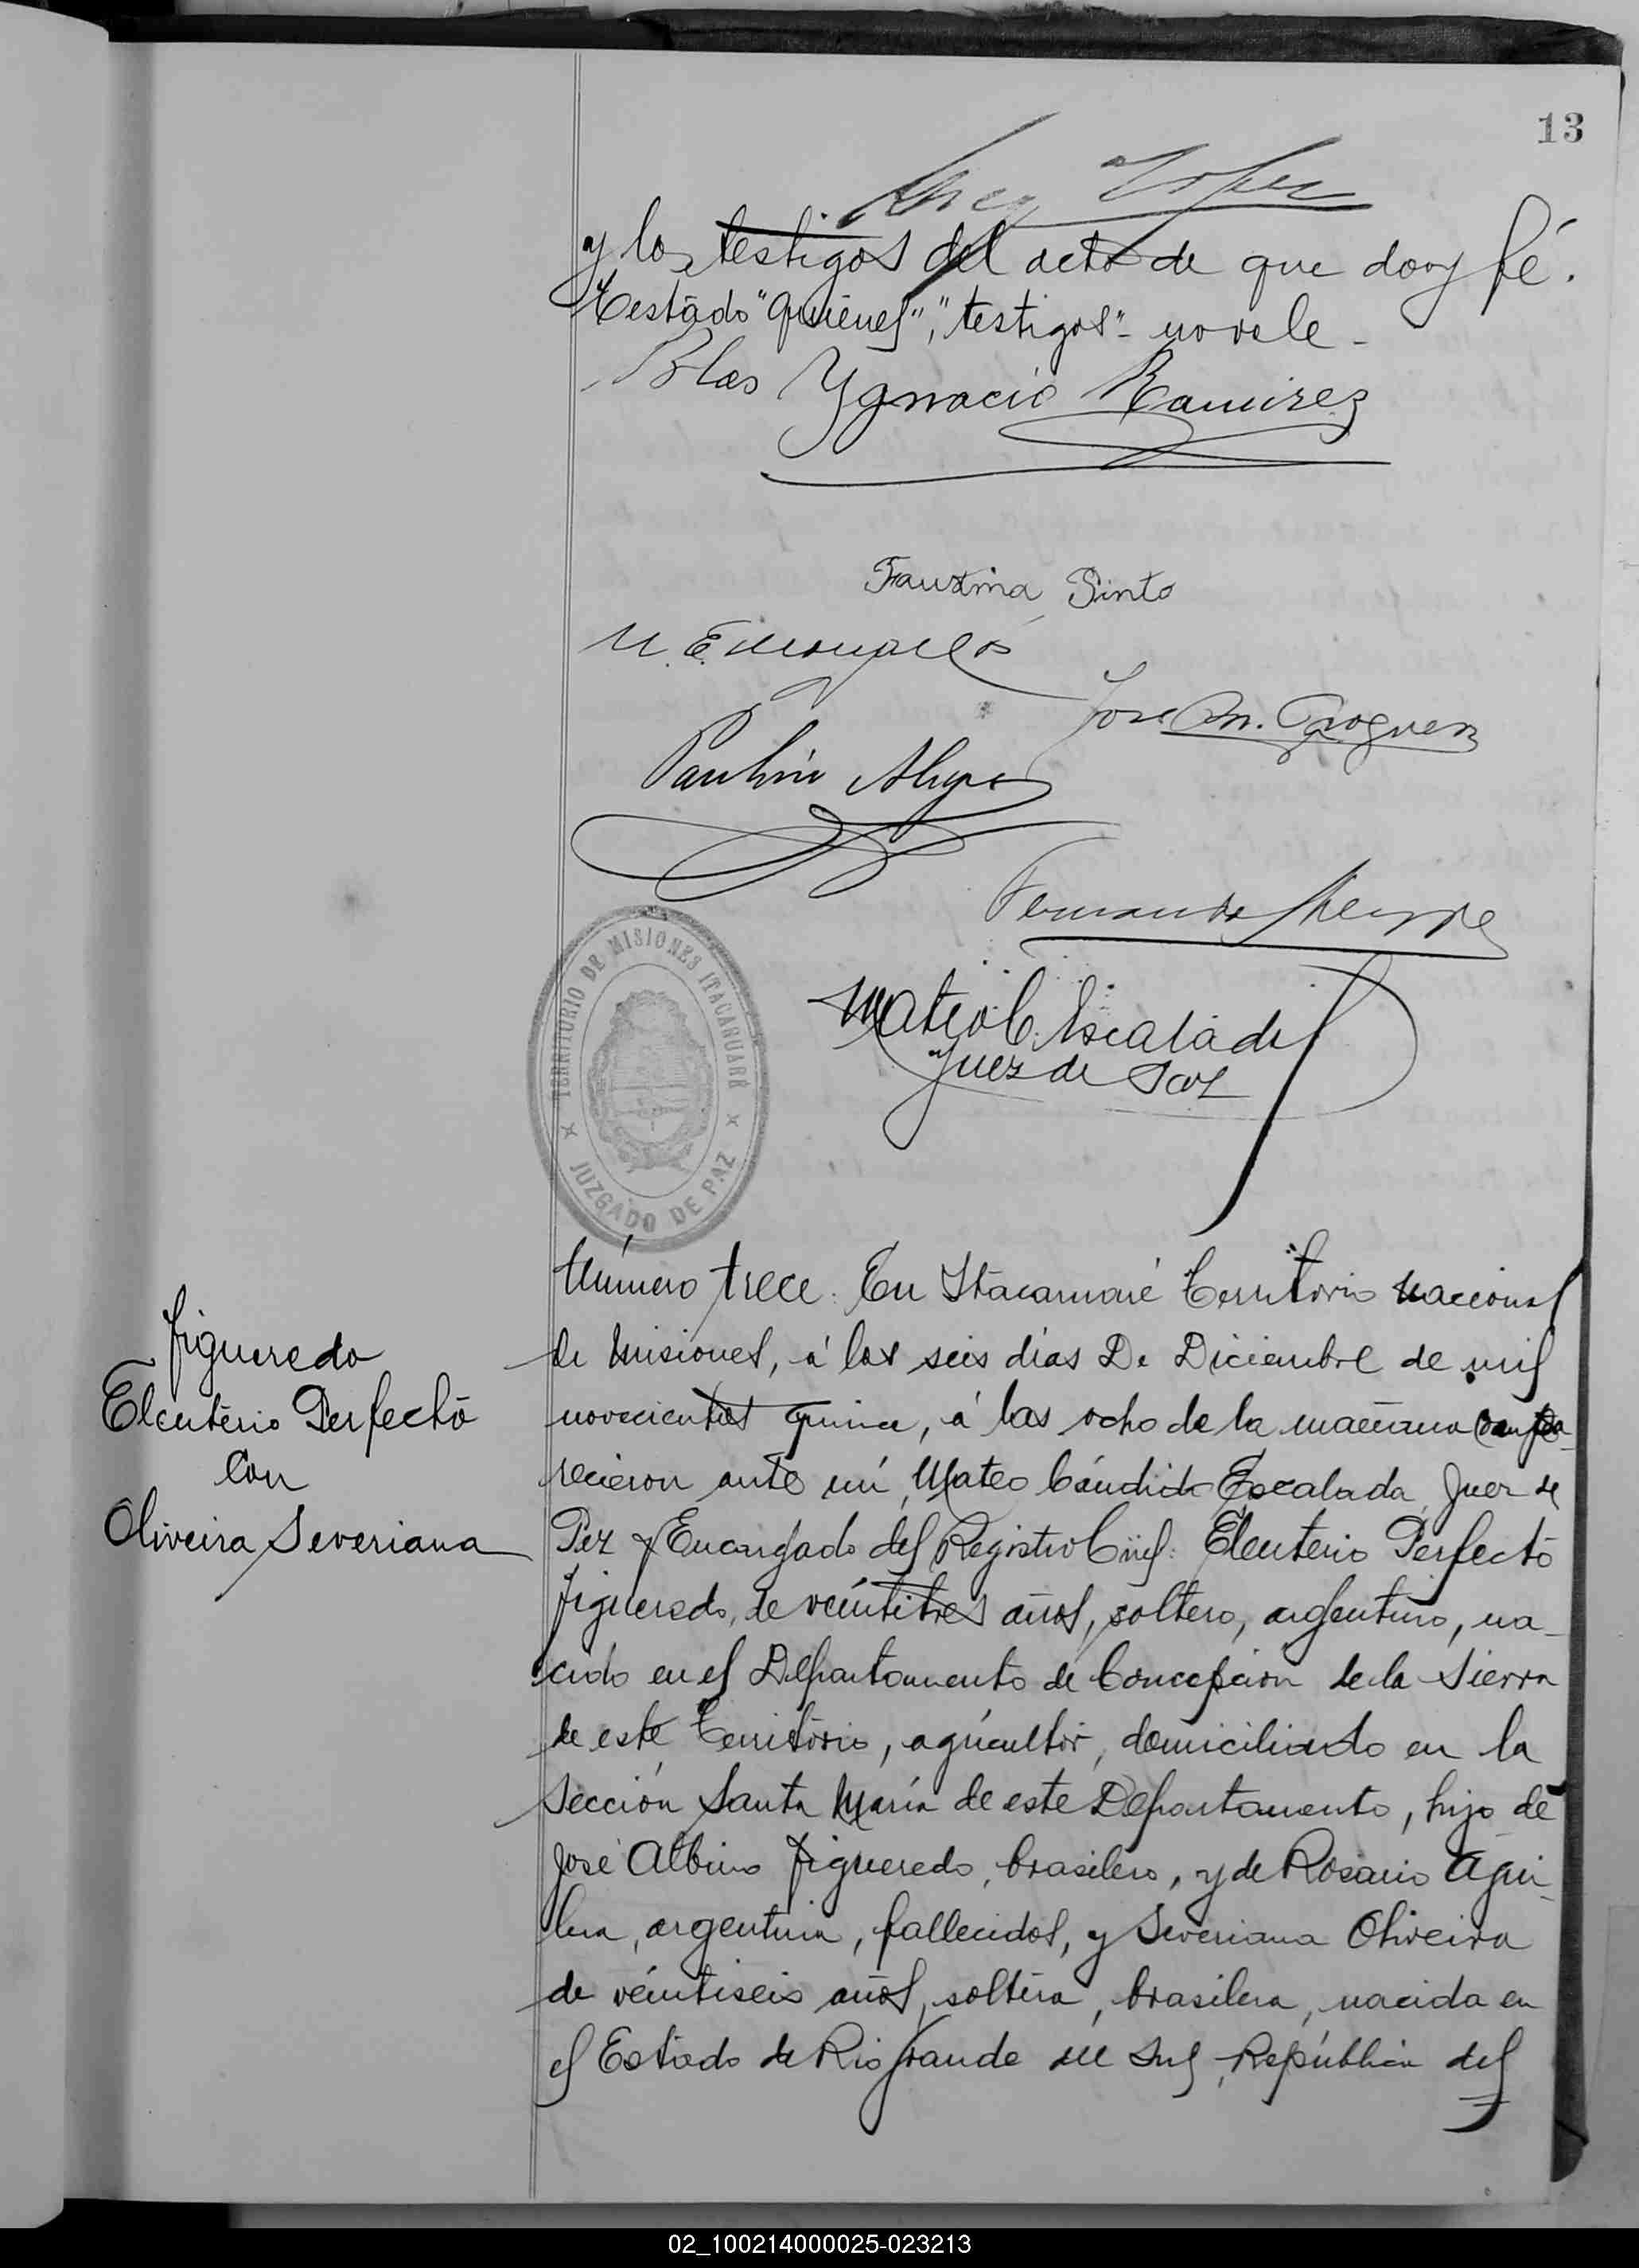 13
y los testigos del acto de que doy fé.
Testado "quienes", "testigos" - no vale -
Blas Ygnacio Ramirez
Faustina Pinto
Mateo C. Escalada
Juez de Paz
TERRITORIO DE MISIONES ITACARUARÉ
JUZGADO DE PAZ
Número trece. En Itacaruaré Territorio Nacional
de Misiones, á los seis días De Diciembre de mil
novecientos quince, á las ocho de la mañana compa-
recieron ante mí, Mateo Cándido Escalada, Juez de
Paz y Encargado del Registro Civil: Eleuterio Perfecto
Figueredo, de veintitres años, soltero, argentino, na-
cido en el Departamento de Concepción de la Sierra
de este Territorio, agricultor, domiciliado en la
Sección Santa María de este Departamento, hijo de
José Albino Figueredo, brasilero, y de Rosario Agui-
lera, argentina, fallecidos, y Severiana Oliveira
de veintiseis años, soltera, brasilera, nacida en
el Estado de Rio Grande del Sul, República del
Figueredo
Eleuterio Perfecto
Con
Oliveira Severiana
02_100214000025-023213